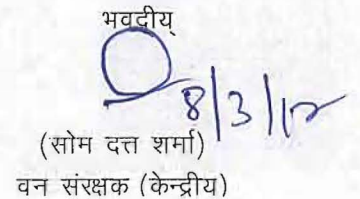 भवदीय्
8/3/12
(सोम दत्त शर्मा)
वन संरक्षक (केन्द्रीय)